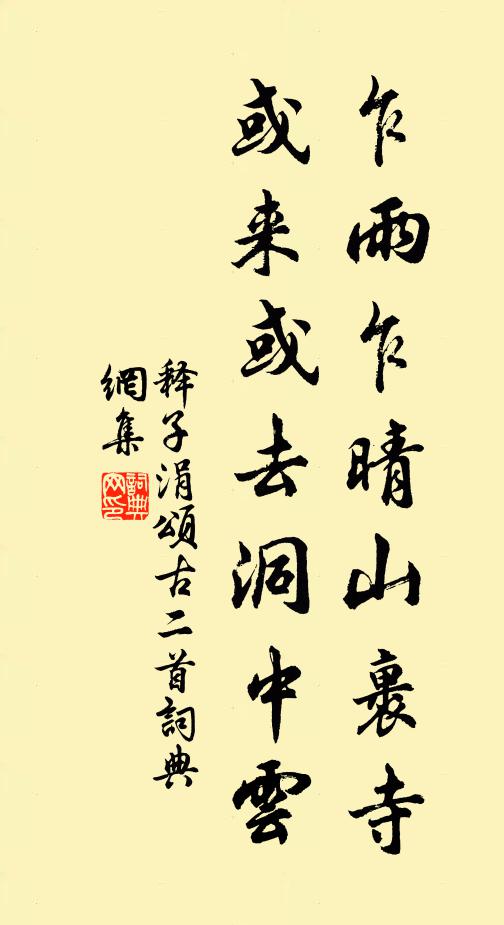 乍雨乍晴山裏寺
或来或去洞中雲
释子涓頌古二首詞典
網集
詞典網印